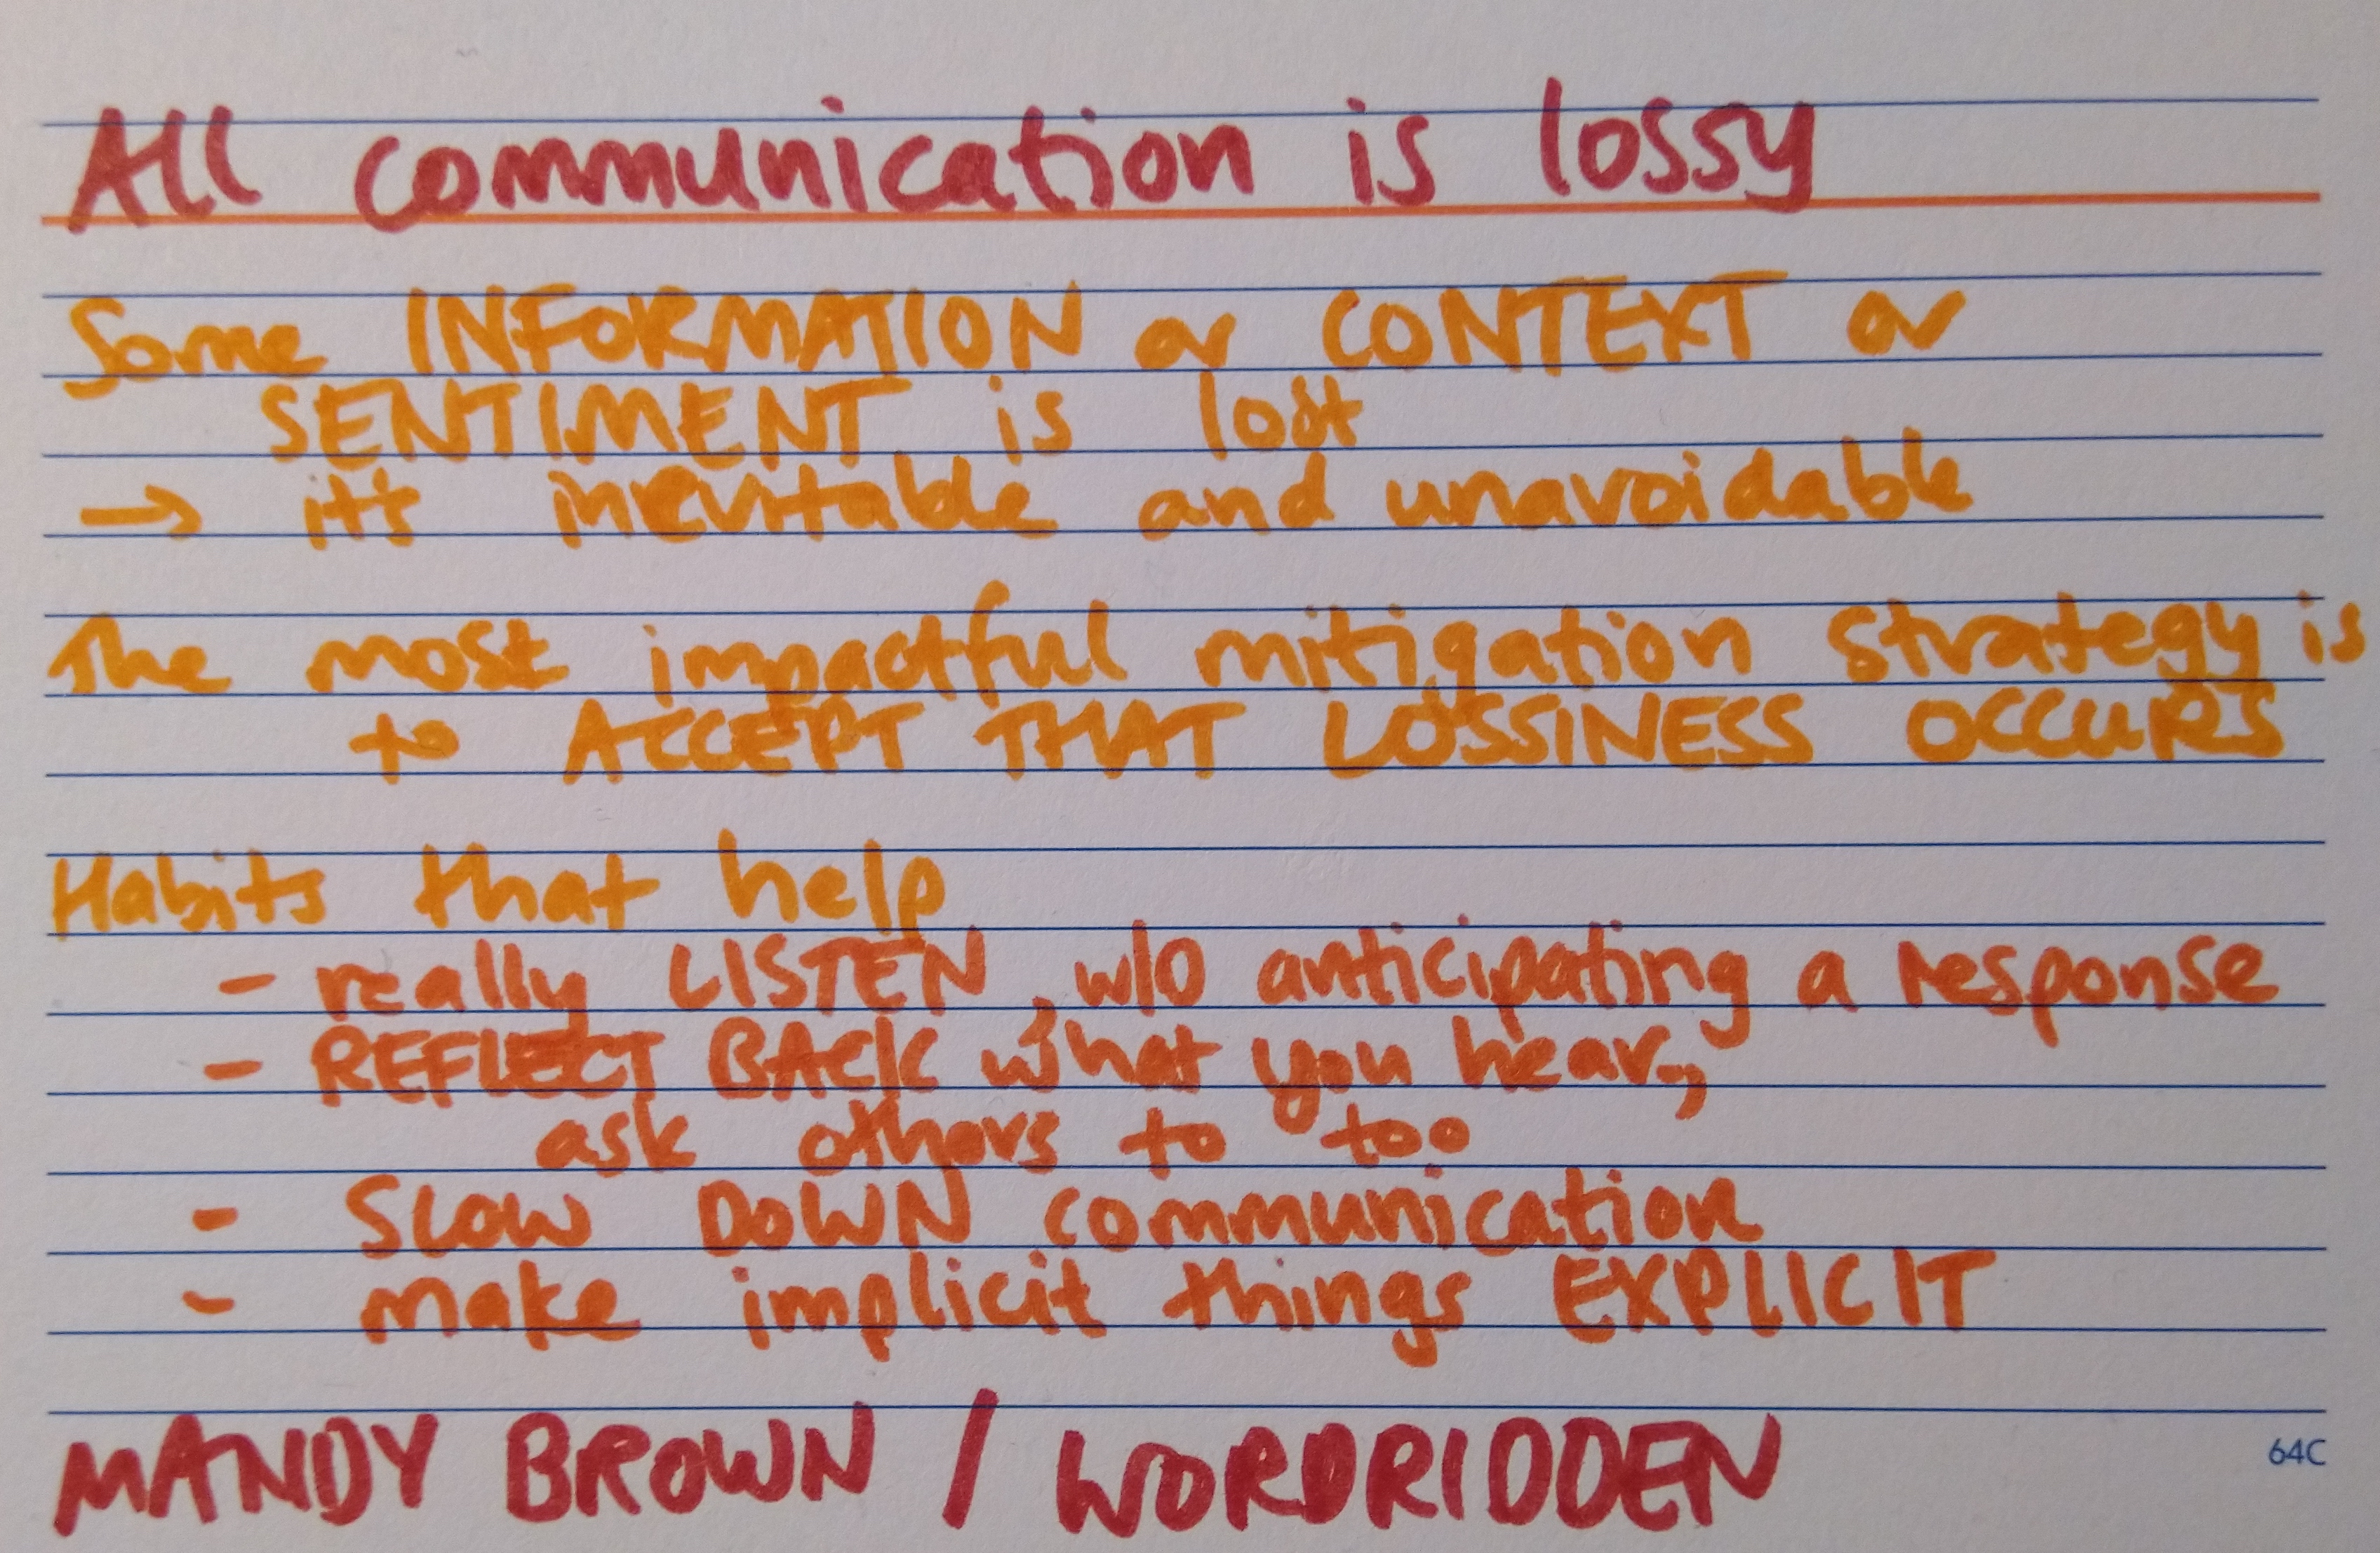 All communication is lossy
Some INFORMATION or CONTEXT or
SENTIMENT is lost
→ it's inevitable and unavoidable
The most impactful mitigation strategy is
to ACCEPT THAT LOSSINESS OCCURS
Habits that help
- really LISTEN, w/o anticipating a response
- REFLECT BACK what you hear,
ask others to too
- SLOW DOWN communication
- make implicit things EXPLICIT
MANDY BROWN / WORDRIDDEN
64C